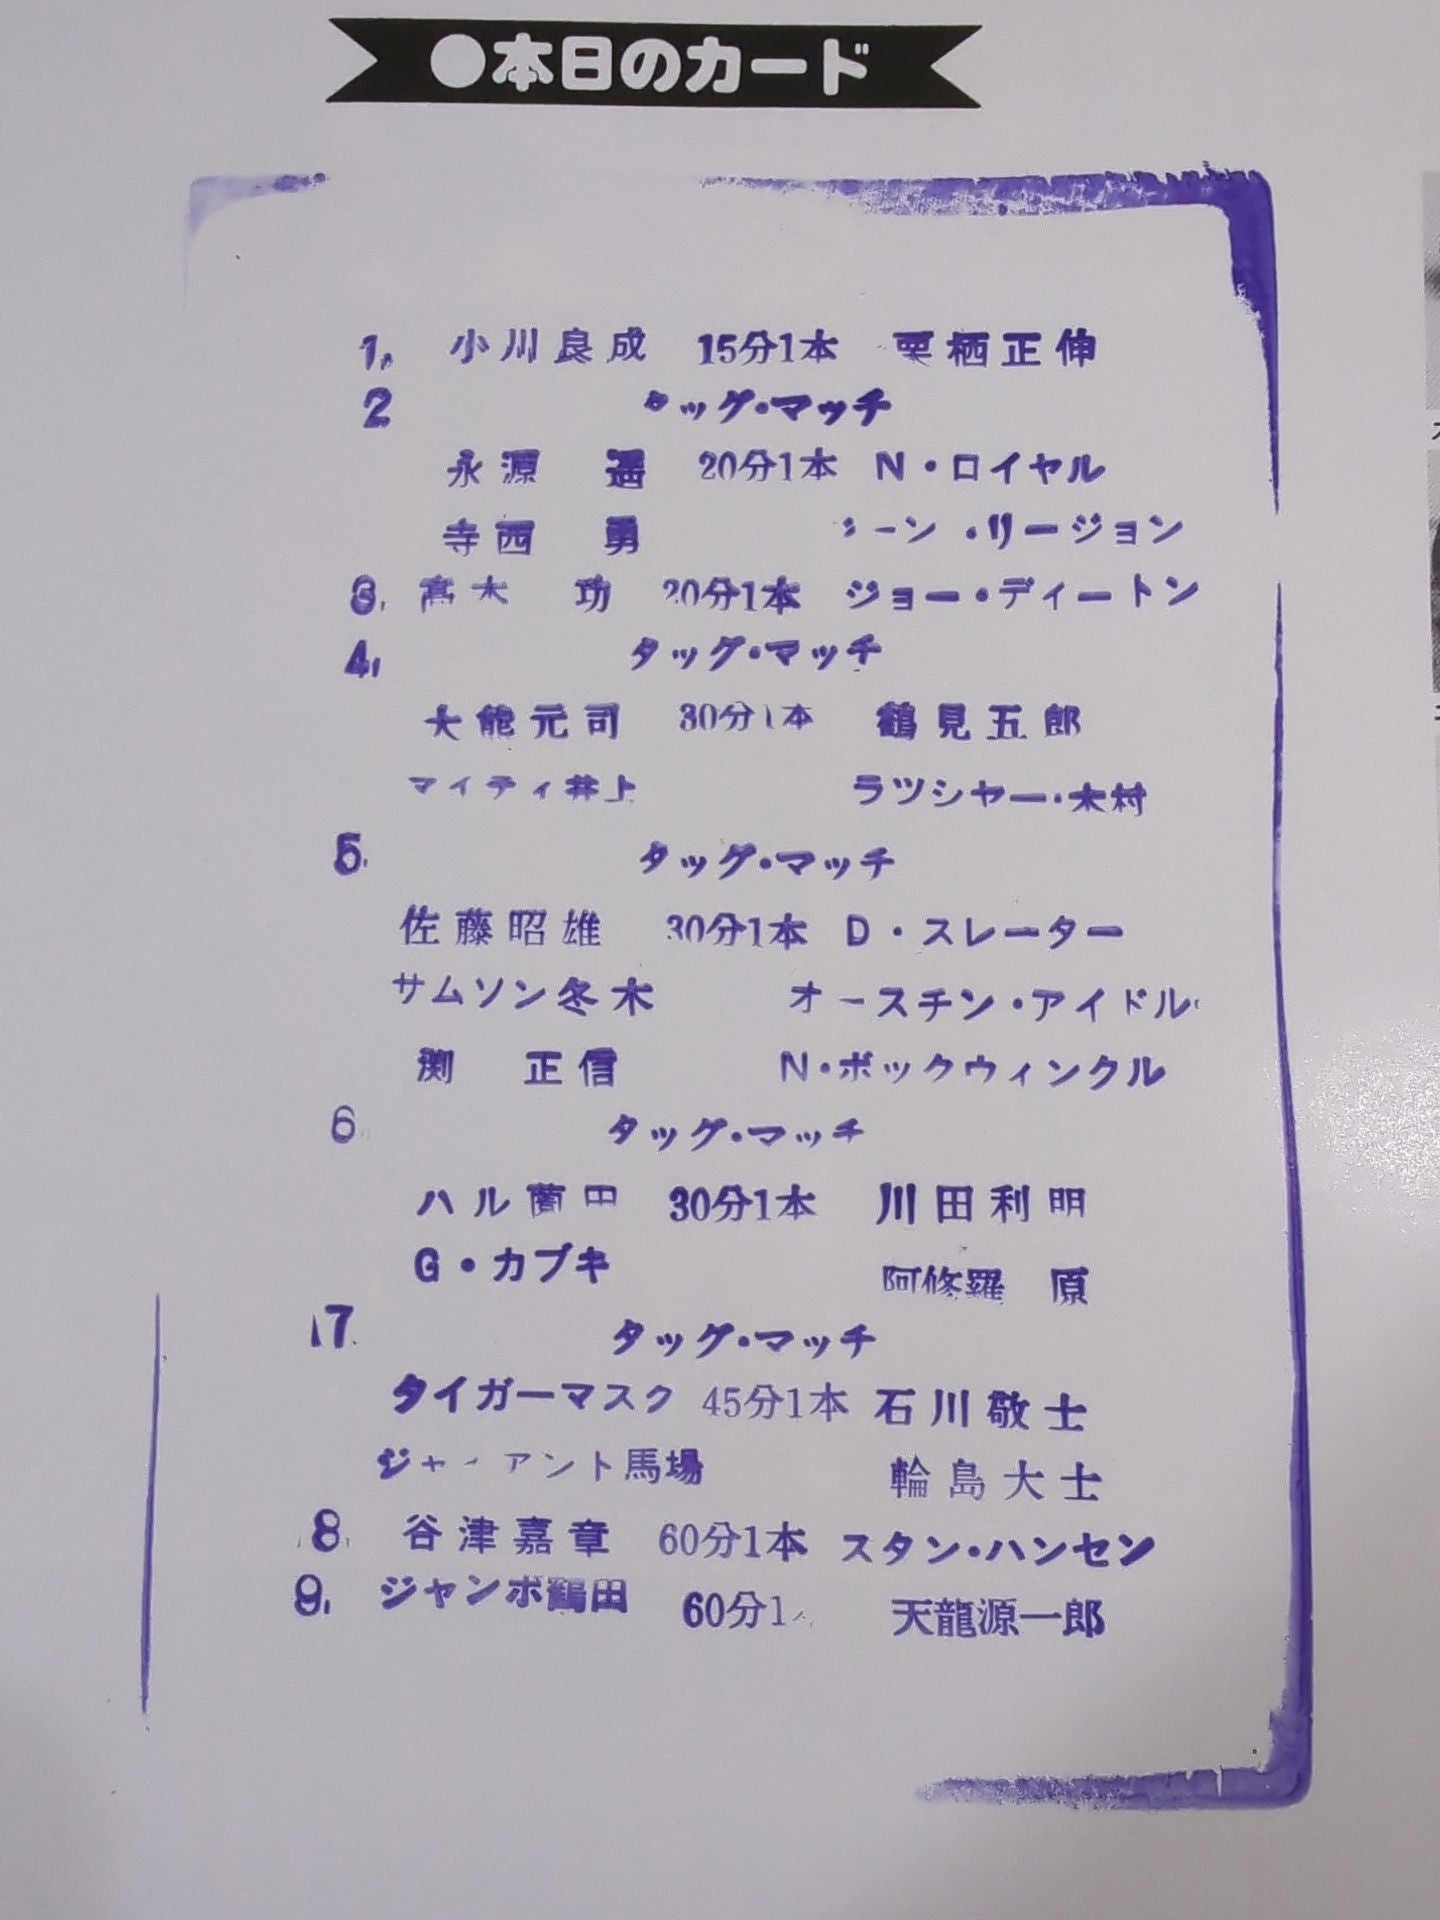 ●本日のカード
1. 小川良成 15分1本 栗栖正伸
2 タッグ・マッチ
永源 遥 20分1本 N・ロイヤル
寺西 勇 ーン・リージョン
3. 高木 功 20分1本 ジョー・ディートン
4. タッグ・マッチ
大熊元司 30分1本 鶴見五郎
マイティ井上 ラツシヤー・木村
5. タッグ・マッチ
佐藤昭雄 30分1本 D・スレーター
サムソン冬木 オースチン・アイドル
渕 正信 N・ボックウィンクル
6 タッグ・マッチ
ハル薗田 30分1本 川田利明
G・カブキ 阿修羅 原
7. タッグ・マッチ
タイガーマスク 45分1本 石川敬士
ジャイアント馬場 輪島大士
8. 谷津嘉章 60分1本 スタン・ハンセン
9. ジャンボ鶴田 60分1 天龍源一郎